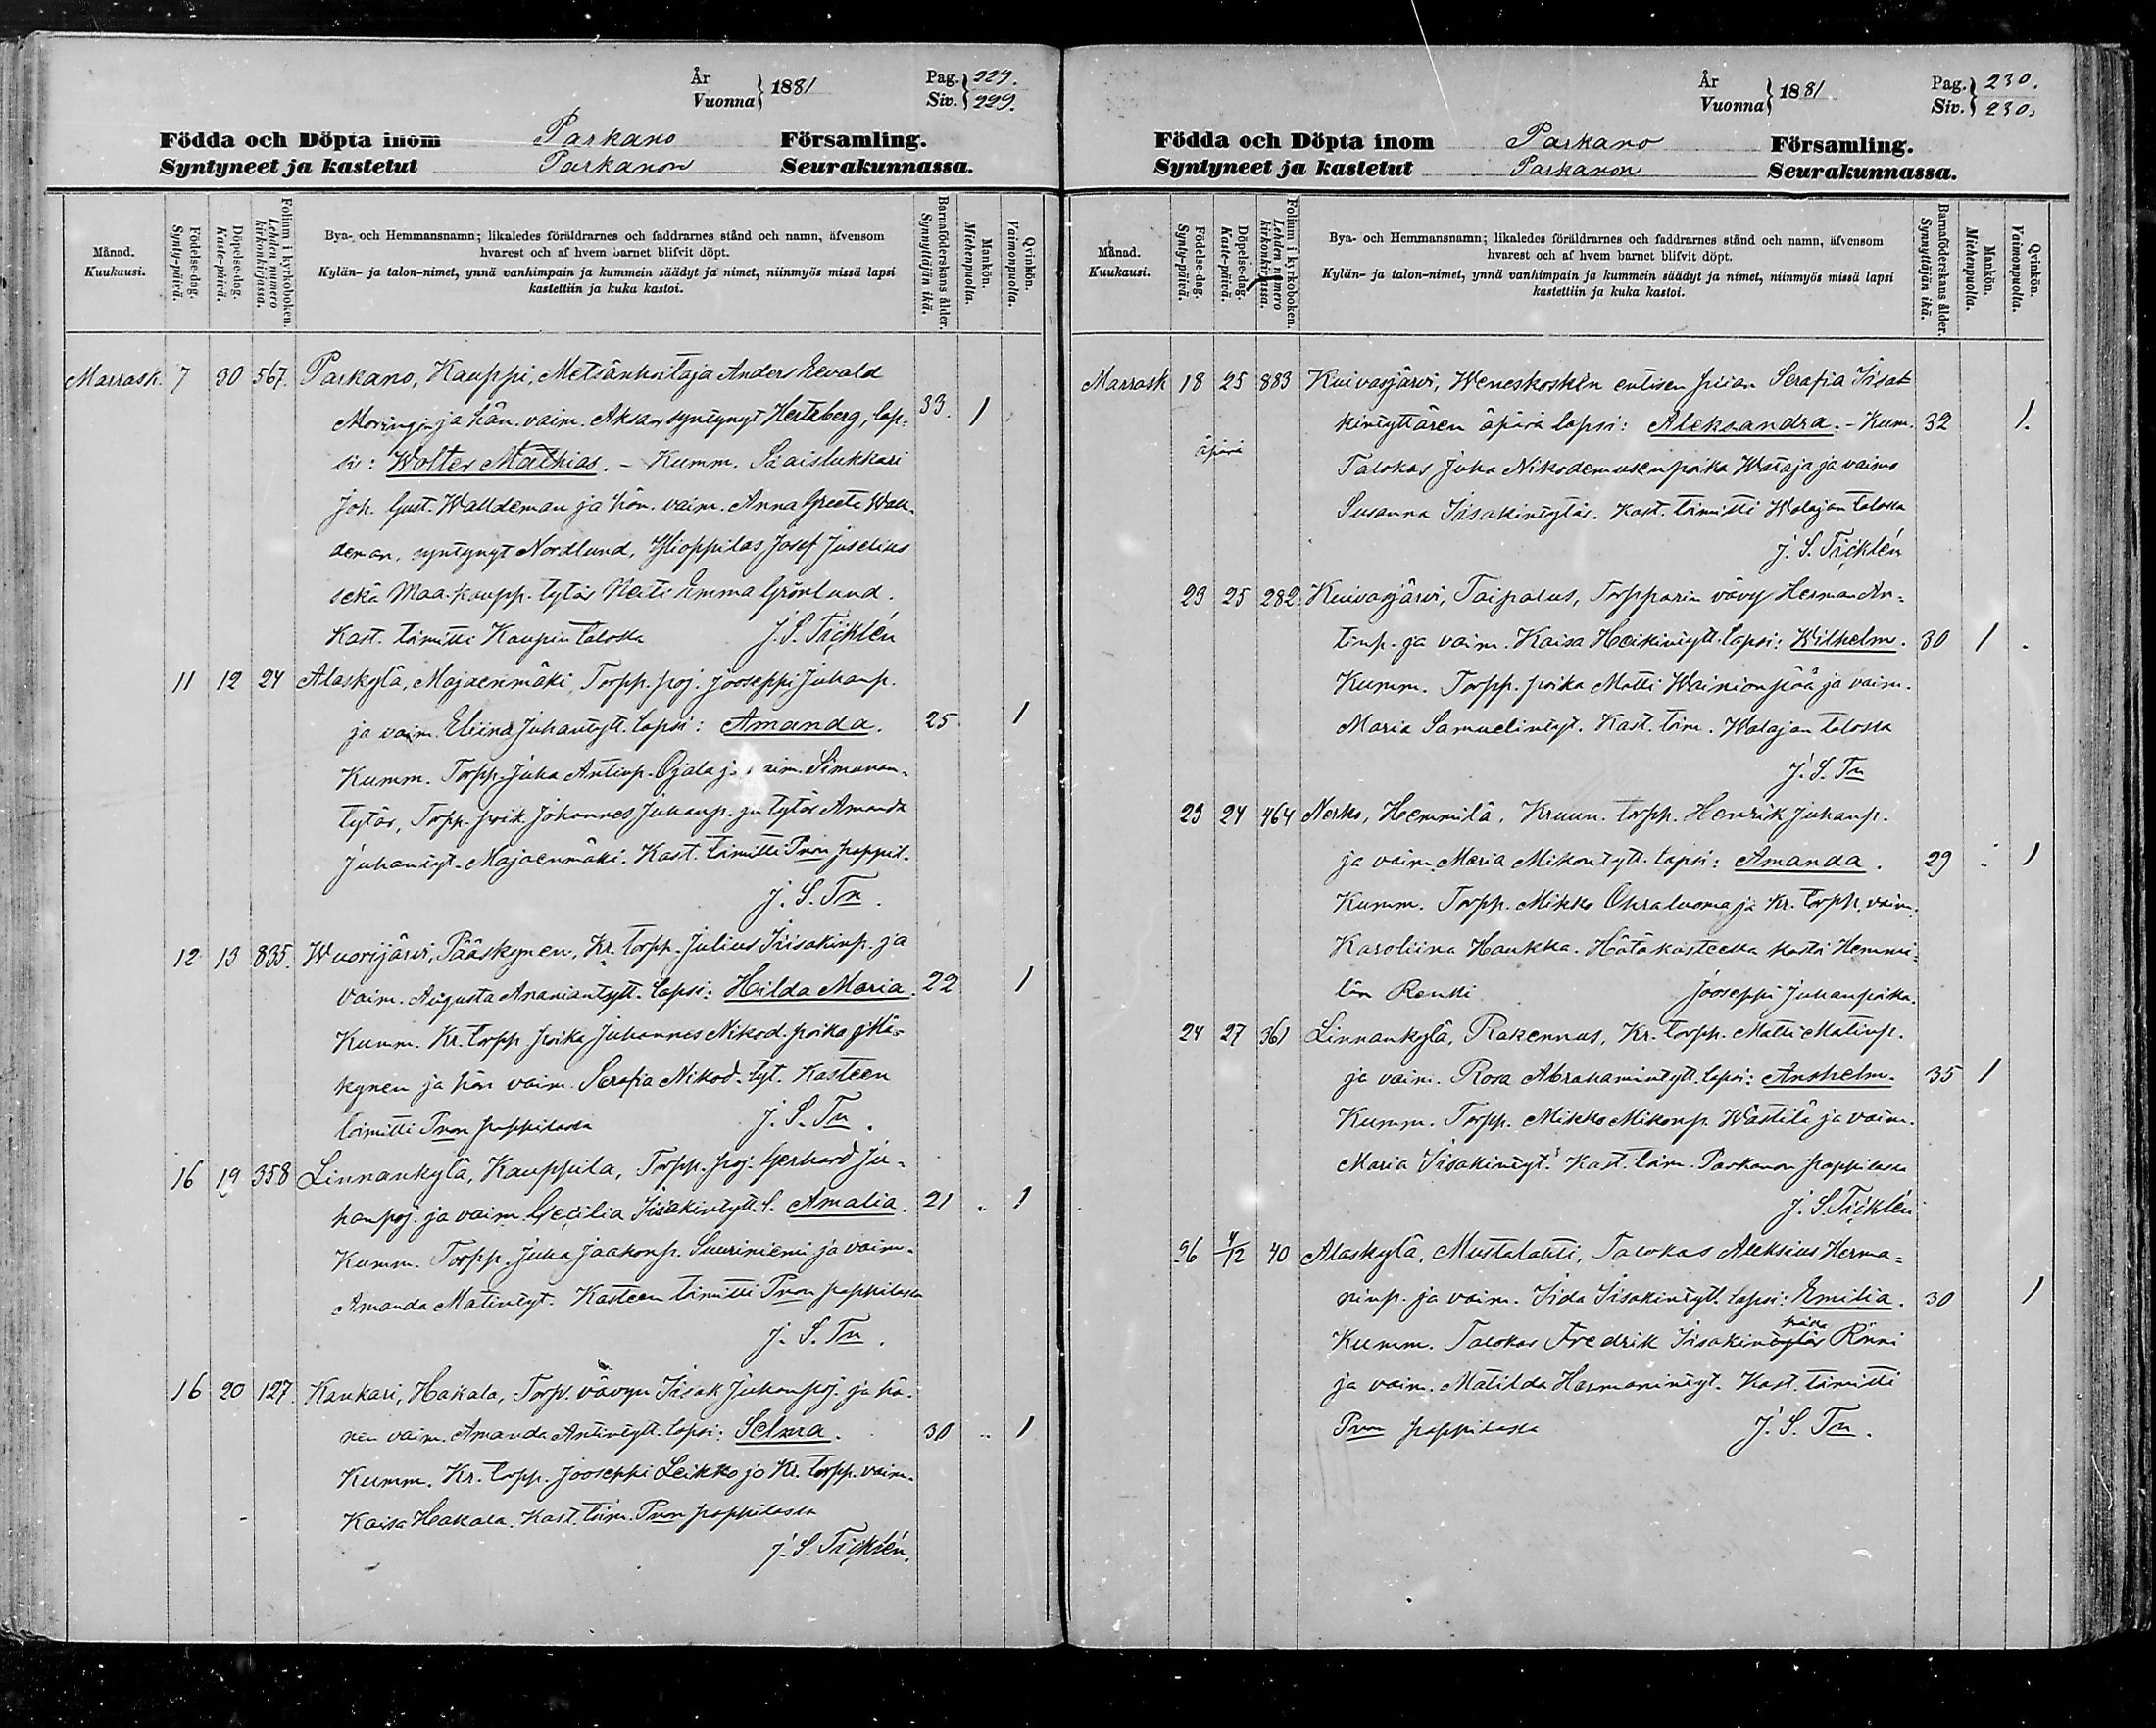 År
Vuonna } 1881
Pag. 229.
Siv. 229.
Födda och Döpta inom Parkano Församling.
Syntyneet ja kastetut Parkanon Seurakunnassa.
Månad.
Kuukausi.
Födelse-dag.
Synty-päivä.
Döpelse-dag.
Kaste-päivä.
Folium i kyrkoboken.
Lehden numero kirkonkirjassa.
Bya- och Hemmansnamn; likaledes föräldrarnes och faddrarnes stånd och namn, äfvensom
hvarest och af hvem barnet blifvit döpt.
Kylän- ja talon-nimet, ynnä vanhimpain ja kummein säädyt ja nimet, niinmyös missä lapsi
kastettiin ja kuka kastoi.
Barnaföderskans ålder.
Synnyttäjän ikä.
Mankön.
Miehenpuolia.
Qvinkön.
Vaimonpuolia.
Marrask. 7 30 567. Parkano, Kauppi, Metsänhoitaja Anders Ewald
Moringin ja hän. vaim. Aksan syntynyt Hertzberg, lap- 33. 1
si: Wolter Mathias. - Kumm. Sisaislukkari
Joh. Gust. Walldeman ja hän. vaim. Anna Greeta Wall-
deman, syntynyt Nordlund, Ylioppilas Josef Juselius
sekä Maa-kaupp. tytär Neiti Emma Grönlund.
Kast. toimitti Kaupin talossa J. S. Tricklén
11 12 24 Alaskylä, Majaenmäki, Torpp. poj. Jooseppi Juhanp.
ja vaim. Eliina Juhantytt. lapsi: Amanda. 25 1
Kumm. Torpp. Juha Antinp. Ojala ja vaim. Simunan-
tytär, Torpp. poik. Johannes Juhanp. ja tytär Amanda
Juhantyt. Majaenmäki. Kast. toimitti Pnon pappil.
J. S. Tn.
12 13 835. Wuorijärvi, Pääskynen, Kr. torpp. Julius Iisakinp. ja
vaim. Augusta Ananiantytt. lapsi: Hilda Maria. 22 1
Kumm. Kr. torpp. poika Juhannes Nikod. poika Pää-
kynen ja hän vaim. Serafia Nikod. tyt. Kasteen
toimitti Pnon pappilassa J. S. Tn.
16 19 358 Linnankylä, Kauppila, Torpp. poj. Gerhard Ju-
hanpoj. ja vaim. Cecilia Iisakintytt. l. Amalia. 21 „ 1
Kumm. Torpp. Juha Jaakonp. Suuriniemi ja vaim.
Amanda Matintyt. Kasteen toimitti Pnon pappilassa
J. S. Tn.
16 20 127. Kankari, Hakala, Torp. vävyn Iisak Juhanpoj. ja hä-
nen vaim. Amanda Antintytt. lapsi: Selma. 30 „ 1
Kumm. Kr. torpp. Jooseppi Leikko ja Kr. torpp. vaim.
Kaisa Hakala. Kast. toim. Pnon pappilassa
J. S. Tricklén.
År
Vuonna } 1881
Pag. 230.
Siv. 230.
Födda och Döpta inom Parkano Församling.
Syntyneet ja kastetut Parkanon Seurakunnassa.
Månad.
Kuukausi.
Födelse-dag.
Synty-päivä.
Döpelse-dag.
Kaste-päivä.
Folium i kyrkoboken.
Lehden numero kirkonkirjassa.
Bya- och Hemmansnamn; likaledes föräldrarnes och faddrarnes stånd och namn, äfvensom
hvarest och af hvem barnet blifvit döpt.
Kylän- ja talon-nimet, ynnä vanhimpain ja kummein säädyt ja nimet, niinmyös missä lapsi
kastettiin ja kuka kastoi.
Barnaföderskans ålder.
Synnyttäjän ikä.
Mankön.
Miehenpuolia.
Qvinkön.
Vaimonpuolia.
Marrask 18 25 883 Kuivasjärvi, Weneskoskin entisen piian Serafia Iisak
kintyttären äpärä lapsi: Aleksandra. - Kum. 32 1.
äpärä Talokas Juha Nikodemusenpoika Wataja ja vaimo
Susanna Iisakintytär. Kast. toimitti Watajan talossa
J. S. Tricklén
23 25 282. Kuivasjärvi, Taipalus, Torpparin vävy Herman An-
tinp. ja vaim. Kaisa Heikintytt. lapsi: Wilhelm. 30 1
Kumm. Torpp. poika Matti Wainionpää ja vaim.
Maria Samuelintyt. Kast. toim. Watajan talossa
J. S. Tn
23 24 464 Nerko, Hemmilä, Kruun. torpp. Henrik Juhanp.
ja vaim. Maria Mikontytt. lapsi: Amanda. 29 „ 1
Kumm. Torpp. Mikko Ohraluoma ja Kr. torpp. vaim.
Karoliina Haukka. Hätäkasteella kasti Hemmi-
län Renki Jooseppi Juhanpoika.
24 27 361 Linnankylä, Rakennus, Kr. torpp. Matti Matinp.
ja vaim. Rosa Abrahamintytt. lapsi: Anshelm. 35 1
Kumm. Torpp. Mikko Mikonp. Wästilä ja vaim.
Maria Iisakintyt. Kast. toim. Parkanon pappilassa
J. S. Tricklén
26 4/12 40 Alaskylä, Mustalahti, Talokas Aleksius Herma-
ninp. ja vaim. Iida Iisakintytt. lapsi: Emilia. 30 1
Kumm. Talokas Fredrik Iisakintytär poika Rönni
ja vaim. Matilda Hermanintyt. Kast. toimitti
Pnon pappilassa J. S. Tn.